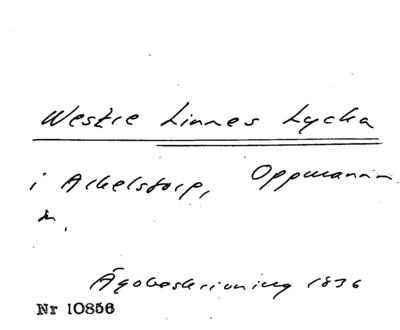 Westre Linnes Lycka
i Arkelstorp, Oppmanna
sn.
Ägobeskrivning 1836
Nr 10856